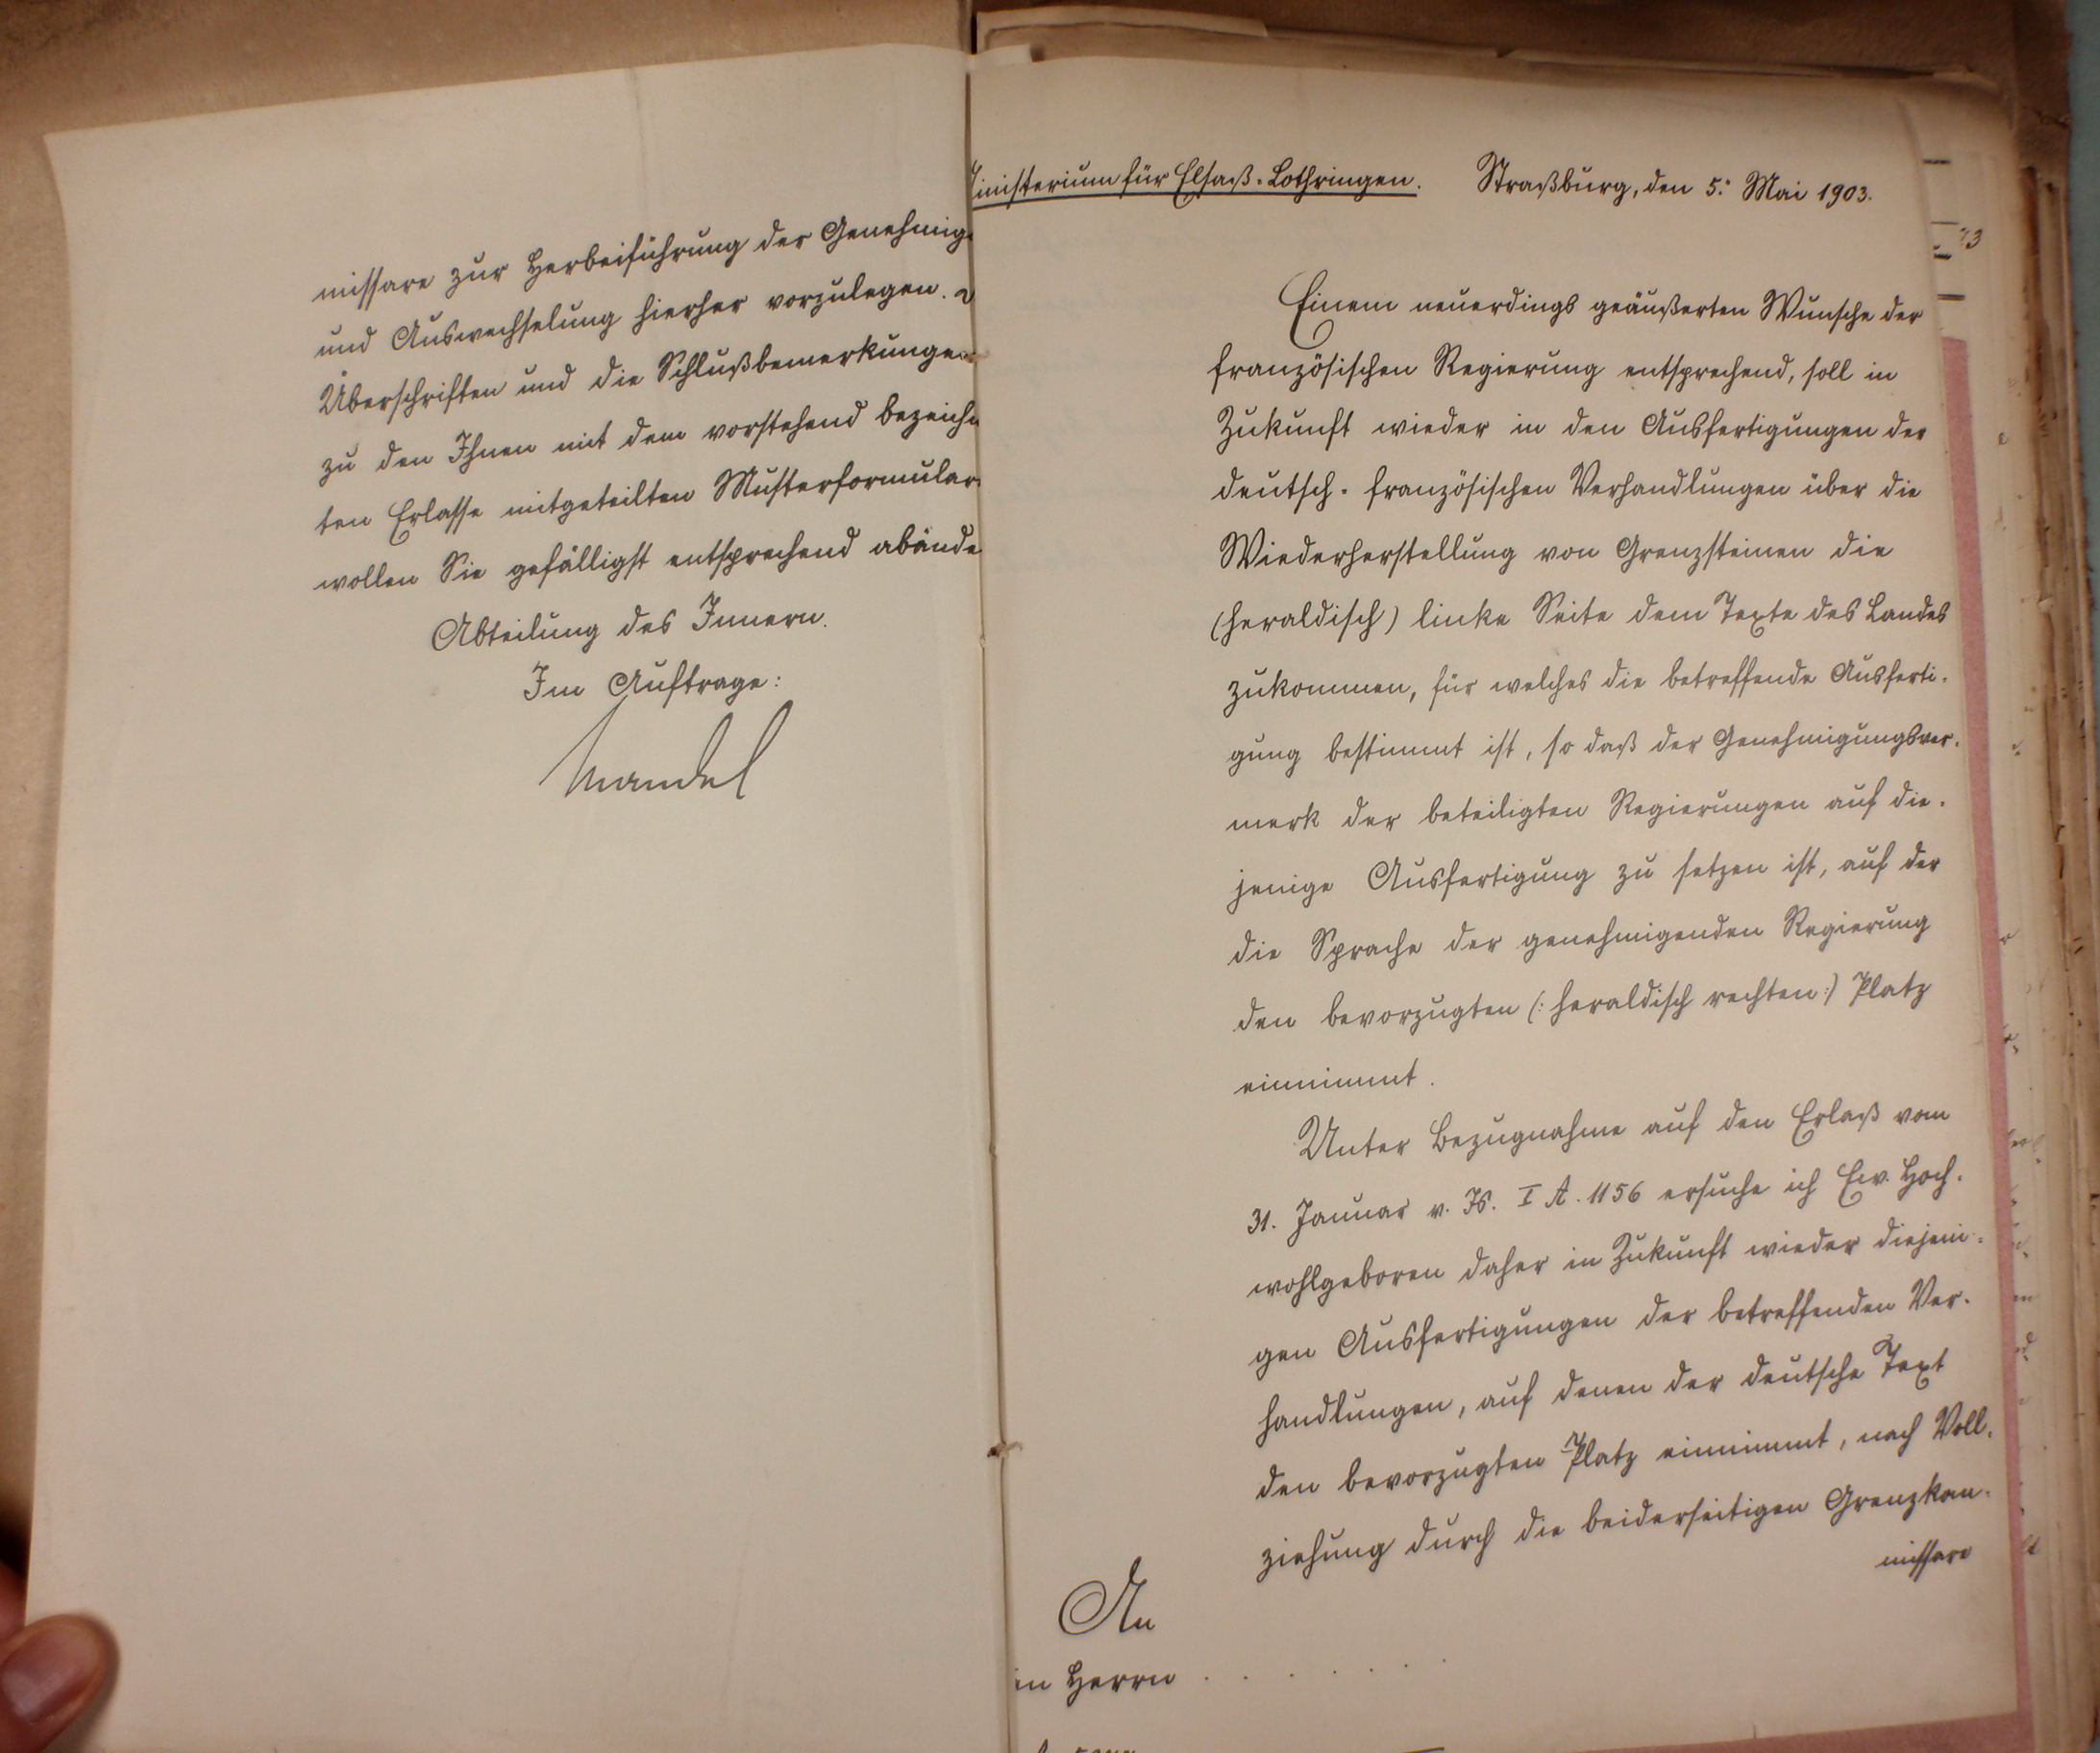 missare zur Herbeiführung der Genehmig
und Auswechselung hierher vorzulegen.
Überschriften und die Schlußbemerkungen
zu den Ihnen mit dem vorstehend bezeich
ten Erlasse mitgeteilten Musterformular
wollen Sie gefälligst entsprechend abände
Abteilung des Innern.
Im Auftrage:
Mandel
inisterium für Elsaß-Lothringen. Straßburg, den 5. Mai 1903.
Einem neuerdings geäußerten Wunsche der
französischen Regierung entsprechend, soll in
Zukunft wieder in den Ausfertigungen der
deutsch-französischen Verhandlungen über die
Wiederherstellung von Grenzsteinen die
(heraldisch) linke Seite dem Texte des Landes
zukommen, für welches die betreffende Ausferti-
gung bestimmt ist, so daß der Genehmigungsver-
merk der beteiligten Regierungen auf die-
jenige Ausfertigung zu setzen ist, auf der
die Sprache der genehmigenden Regierung
den bevorzugten (: heraldisch rechten :) Platz
einnimmt.
Unter Bezugnahme auf den Erlaß vom
31. Januar v. Js. I A. 1156 ersuche ich Ew. Hoch-
wohlgeboren daher in Zukunft wieder diejeni-
gen Ausfertigungen der betreffenden Ver-
handlungen, auf denen der deutsche Text
den bevorzugten Platz einnimmt, nach Voll-
ziehung durch die beiderseitigen Grenzkom-
missare
An
en Herrn . . . . . .